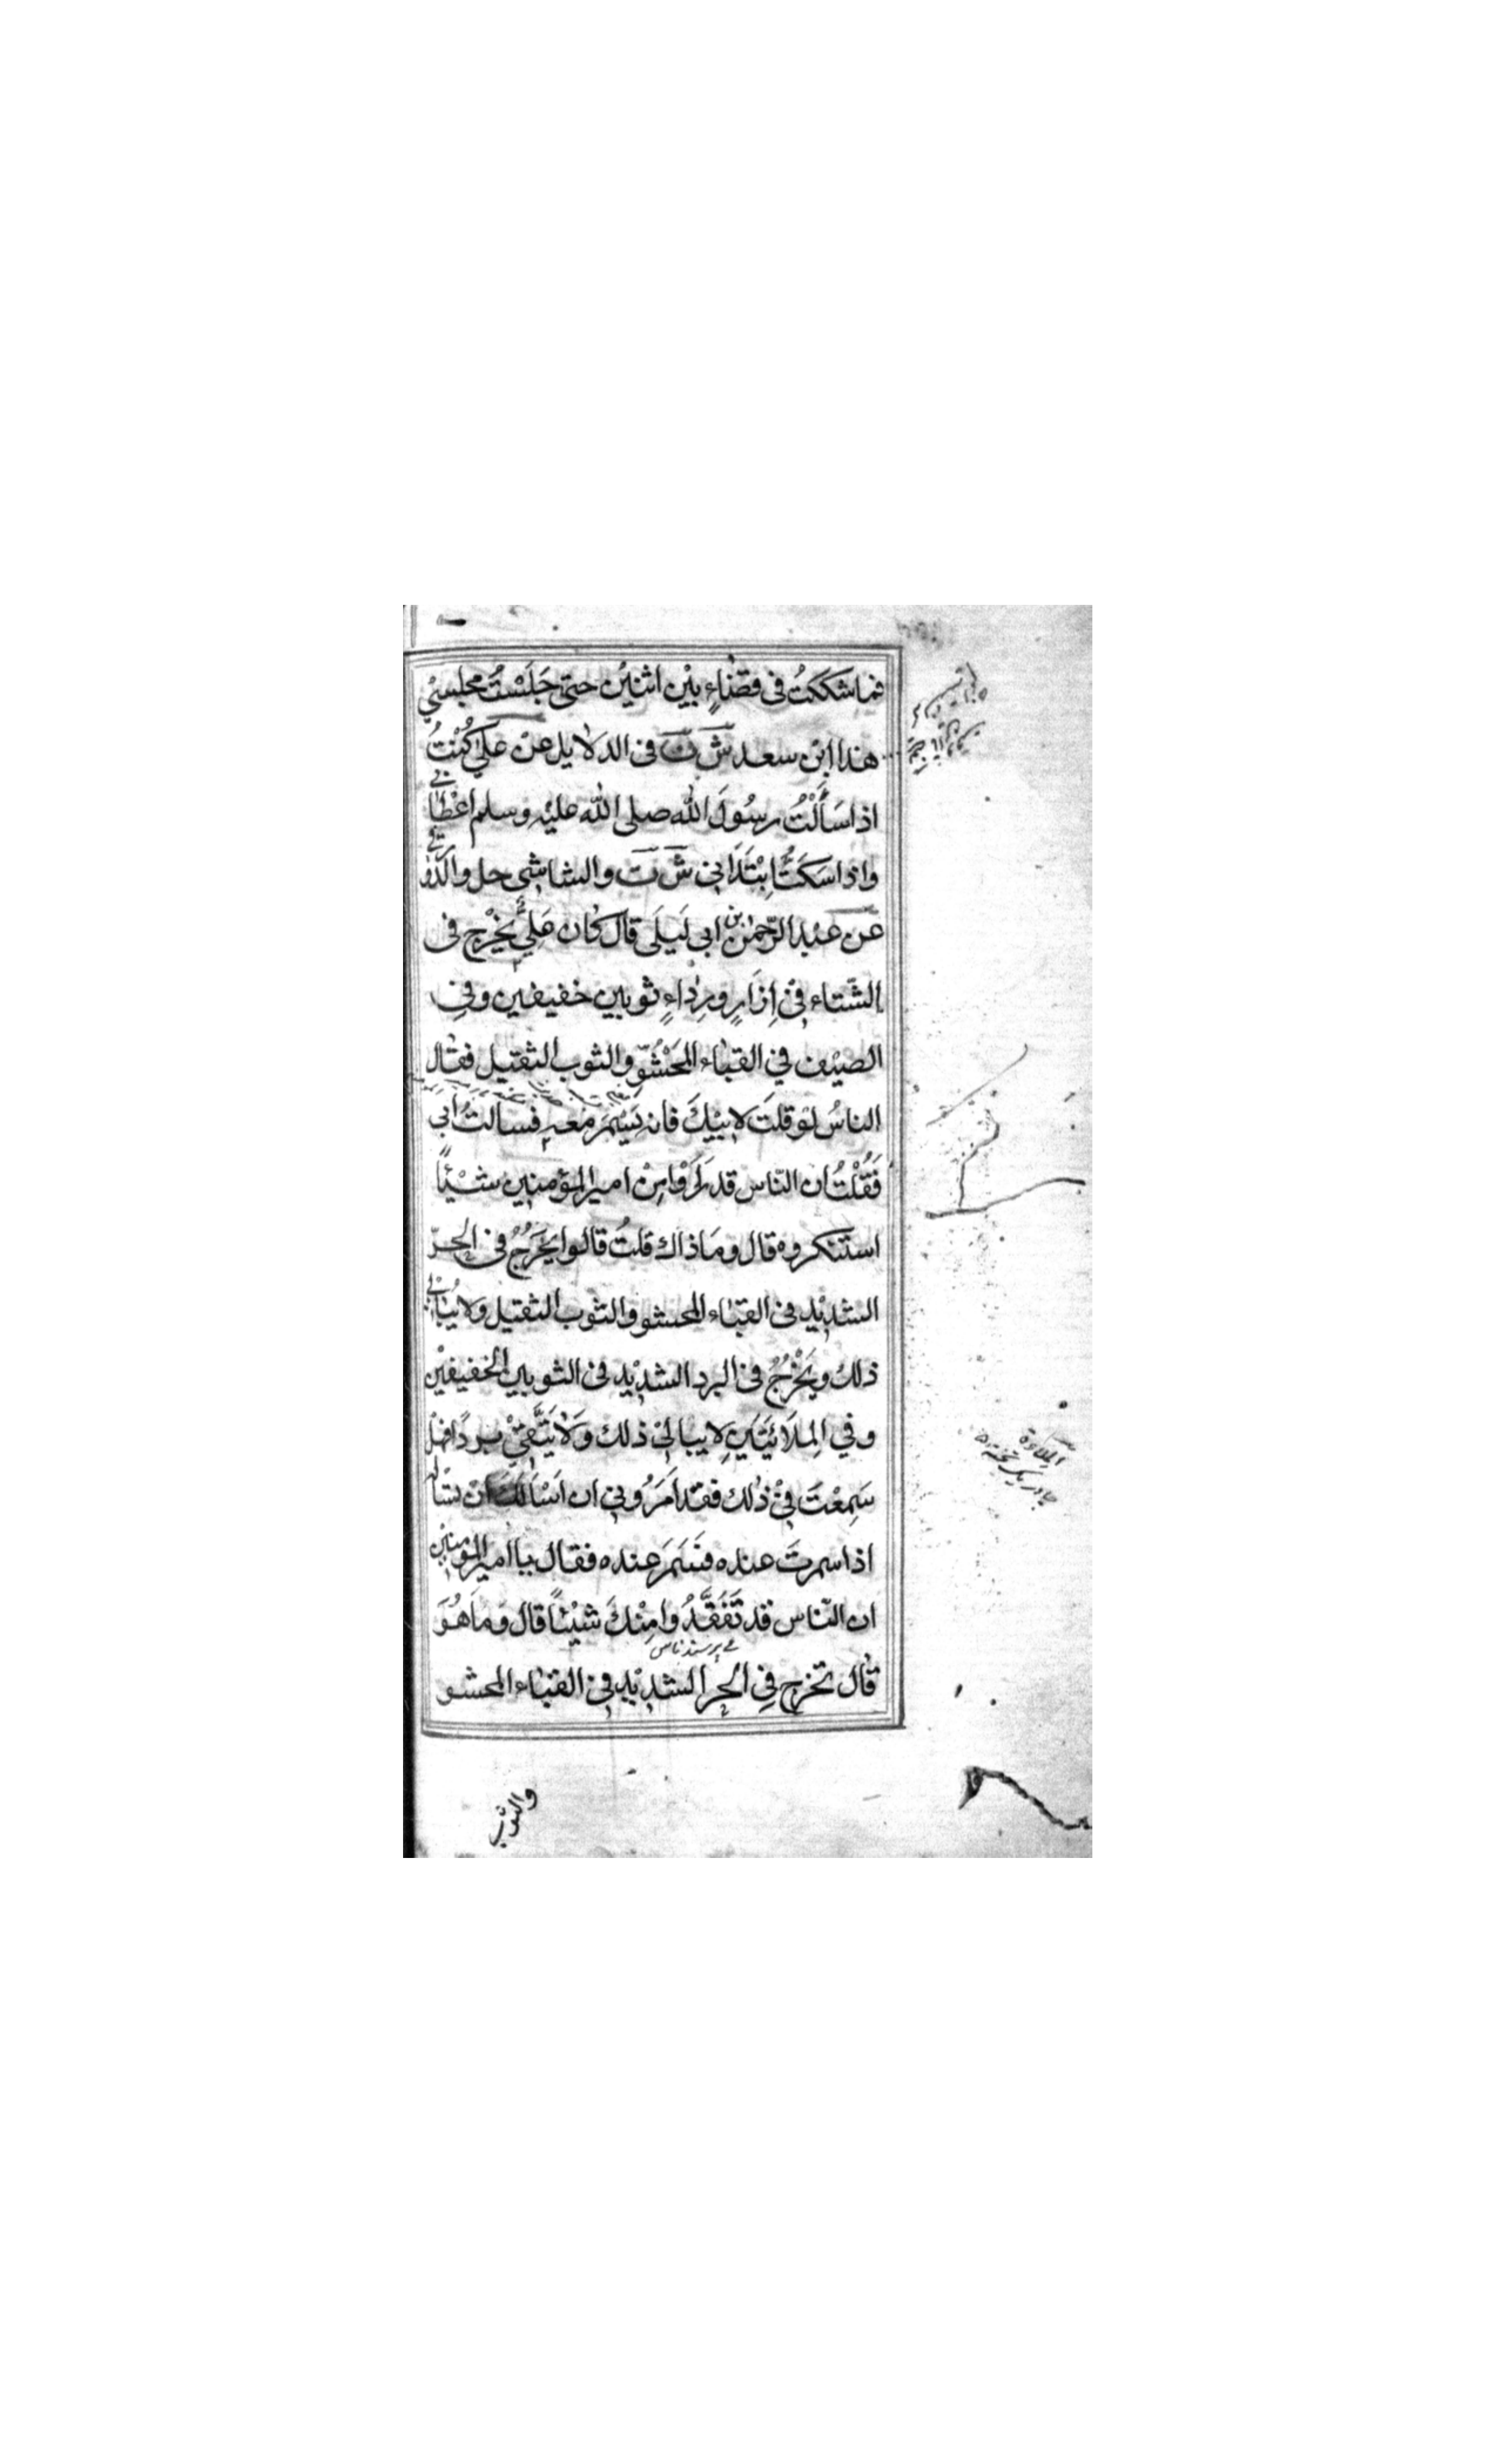 فما شككتُ فى قضاءٍ بيْن اثنيْن حتى جَلَسْتُ مجلسىْ
هذا ابْن سعد شَ تَ فى الدلايل عن علىٍ كُنْتُ
اذا سَأَلْتُ رسُولَ اللّٰه صلى اللّٰه عليْه وسلم اعْطَانى
واذا سَكَتُّ ابْتَدَانِى شَ تَ والشاشى حل والدورقى
عن عبْد الرّحمٰن بن ابى لَيلَى قال كان عَلِىٌّ يخْرج فى
الشّتاء فِىْ اِزَارٍ ورِدَاءٍ ثوبين خفيفين وفى
الصيْف فِى القبَاء المَحْشُوّ والثوب الثقيل فقال
الناسُ لوقلتَ لابِيْكَ فانه يَسْمَرُ معه فسالتُ ابى
فَقُلْتُ ان النّاس قد رَاَوْا مِنْ امير المؤمنين شيْئًا
استنكروه قال وَمَا ذاك قلتُ قالوا يَخْرُجُ فى الحرّ
الشديْد فى القبَاء المحشو والثوب الثقيل ولا يُبَالى
ذلك ويَخْرُجُ فى البرد الشديْد فى الثوبين الخفيفيْن
وفي المِلَائَتَيْنِ لا يبالى ذلك وَلَا يَتَّقِىْ بردًا فهلْ
سَمِعْتَ فِىْ ذٰلك فقد اَمَرُونِى ان اَسْاَلَكَ اَنْ تساله
اذا سمرتَ عنده فَسَمَرَ عنده فقال يا امير المؤمنين
ان النّاس قد تَفَقَّدُوا مِنْكَ شيْئًا قال وَمَا هُوَ
قال تخرج فِى الحر الشديْد فِى القبَاء المحشو
والثوب
المِلاءَة